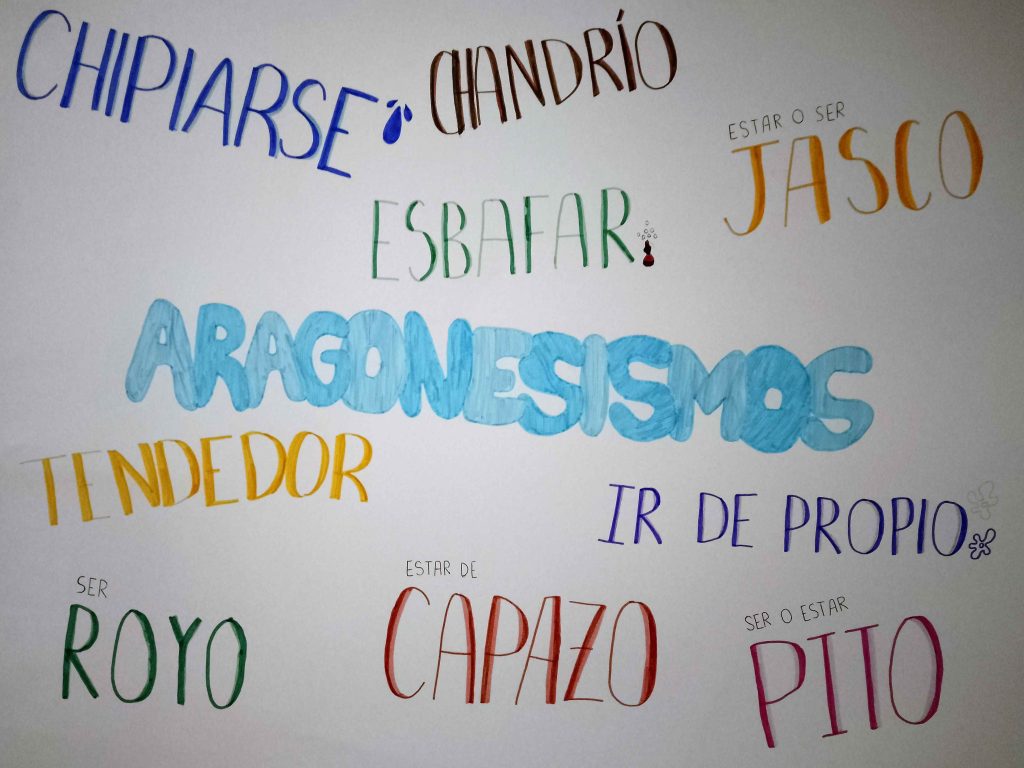 CHIPIARSE
CHANDRÍO
ESTAR O SER
JASCO
ESBAFAR
ARAGONESISMOS
TENDEDOR
IR DE PROPIO
SER
ROYO
ESTAR DE
CAPAZO
SER O ESTAR
PITO